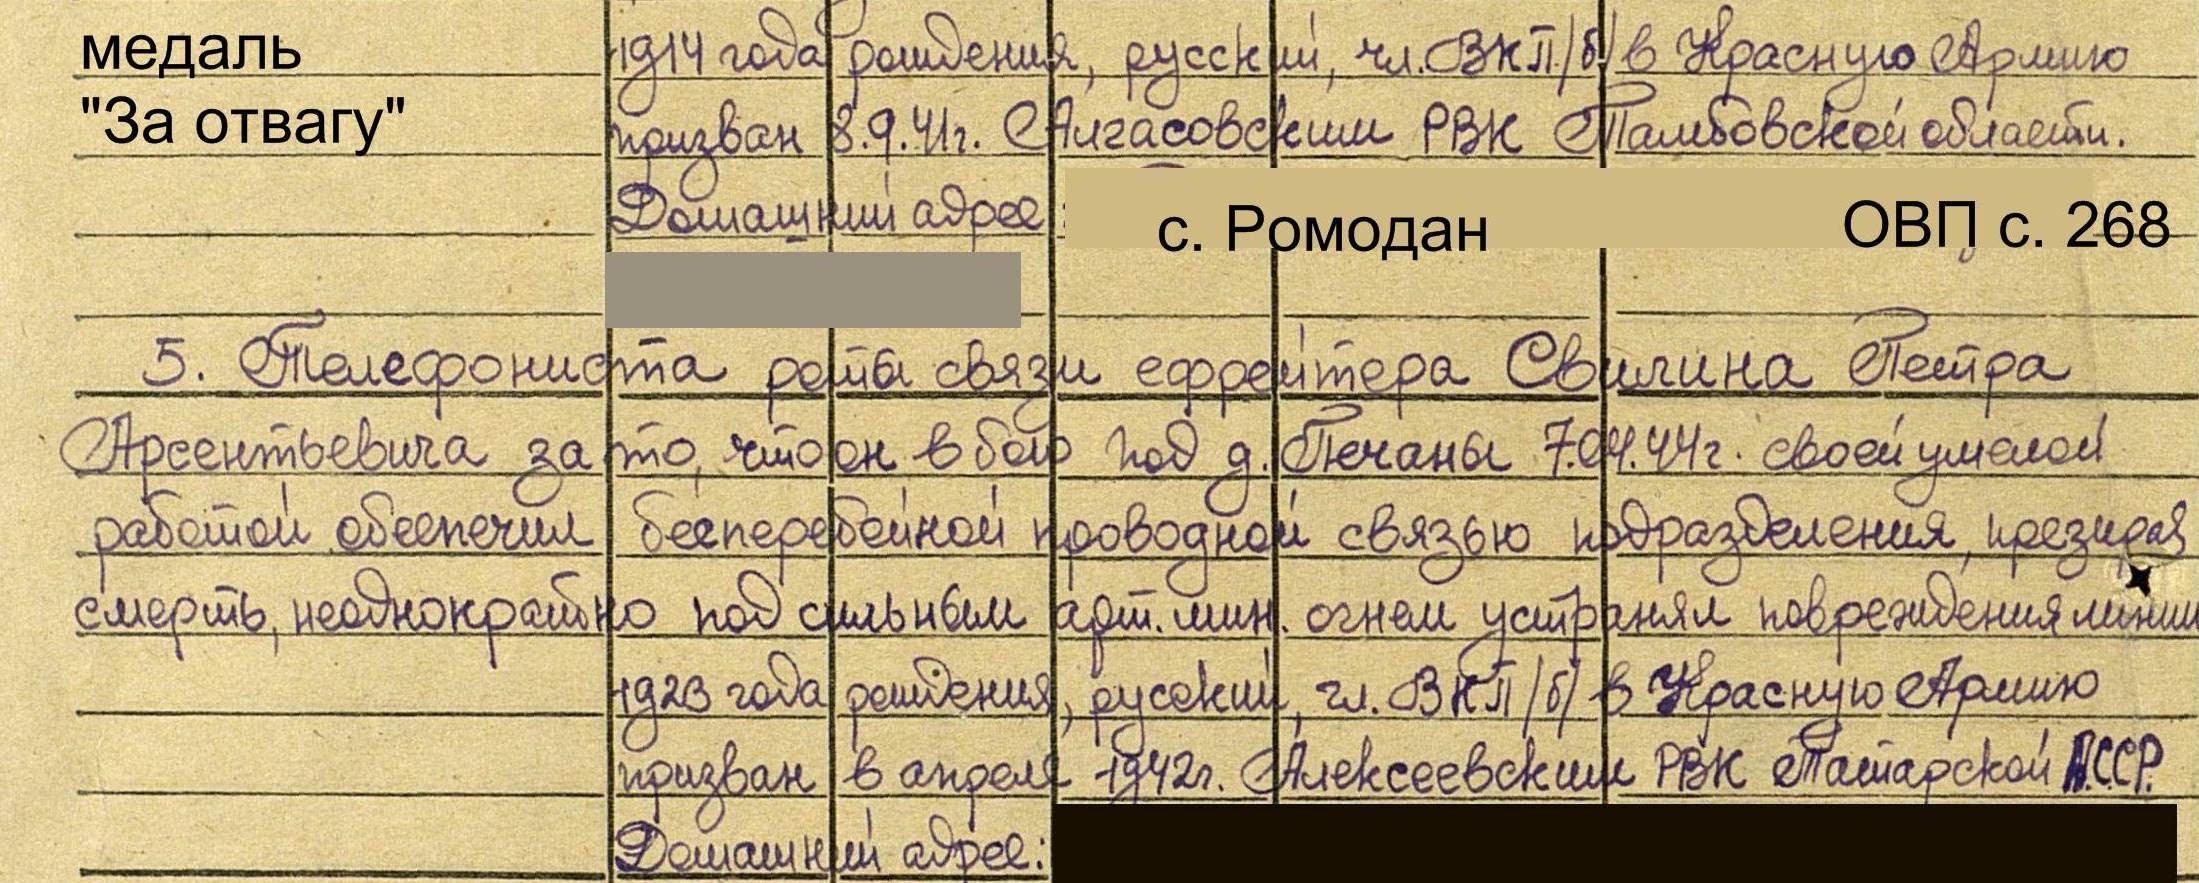 медаль
"За отвагу"
1914 года рождения, русский, чл. ВКП/б/ в Красную Армию
призван 8.9.41г. Алгасовским РВК Тамбовской области.
Домашний адрес
с. Ромодан ОВП с. 268
5. Телефониста роты связи ефрейтера Свилина Петра
Арсентьевича за то, что он в бою под д. Печаны 7.04.44г. своей умелой
работой обеспечил бесперебойной проводной связью подразделения, презирая
смерть, неоднократно под сильным арт. мин. огнем устранял повреждения линии
1923 года рождения, русский, чл. ВКП/б/ в Красную Армию
призван в апреле 1942г. Алексеевским РВК Татарской АССР.
Домашний адрес: